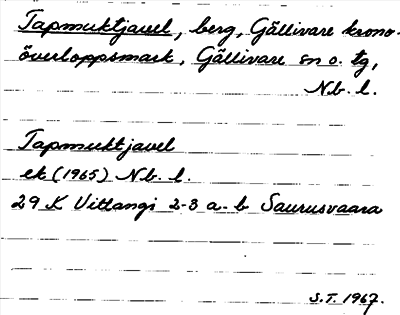 Tapmuktjavel, berg, Gällivare krono-
överloppsmark, Gällivare sn o. tg,
Nb. l.
Tapmuktjavel
ek (1965) Nb. l.
29 K Vittangi 2-3 a-b Saurusvaara
S.T. 1967.